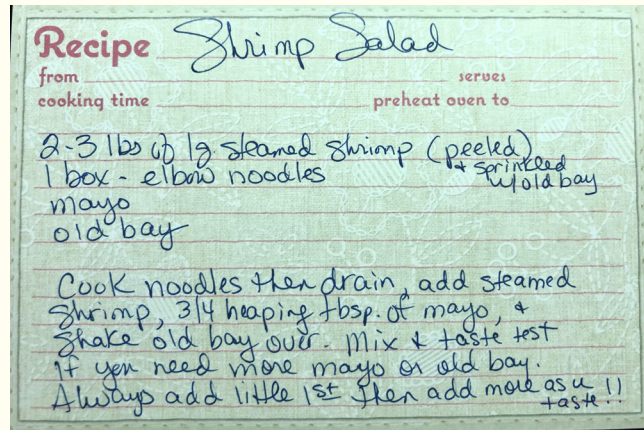 Recipe Shrimp Salad
from serves
cooking time preheat oven to
2-3 lbs of lg steamed shrimp (peeled)
& sprinkled
w/old bay
1 box - elbow noodles
mayo
old bay
Cook noodles then drain, add steamed
shrimp, 3/4 heaping tbsp. of mayo, &
shake old bay over. Mix & taste test
If you need more mayo or old bay.
Always add little 1st then add more as u
taste!!